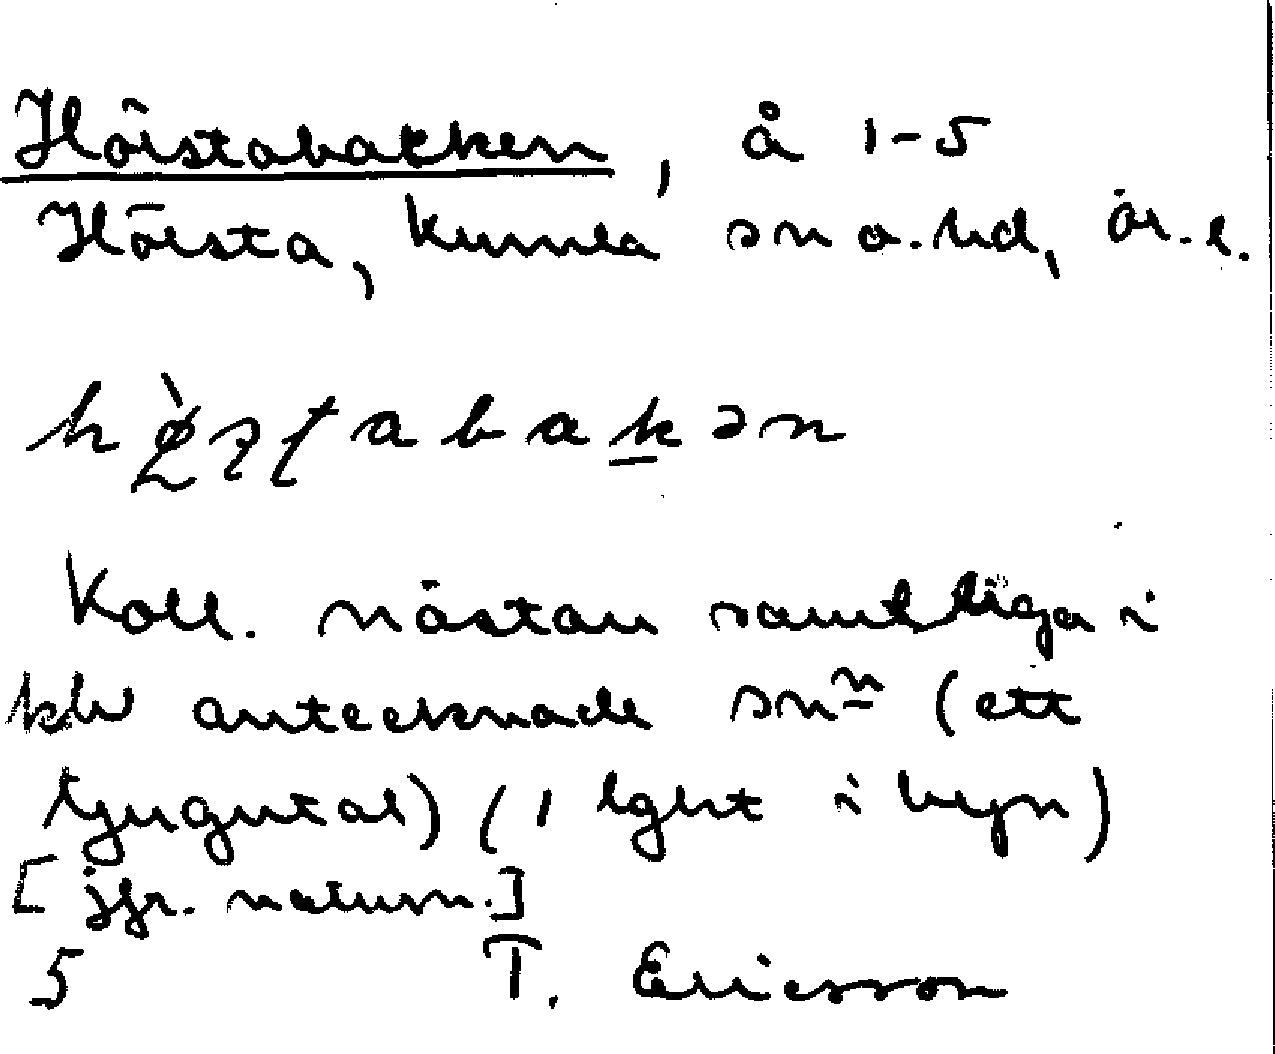 Hörstabacken, å 1-5
Hörsta, Kumla sn o. hd, Ör. l.
hø̀ʂʈabakən
Koll. nästan samtliga i
kbl antecknade snⁿ (ett
tjugutal) (1 lght i byn)
[jfr. naturn.]
5 T. Ericsson